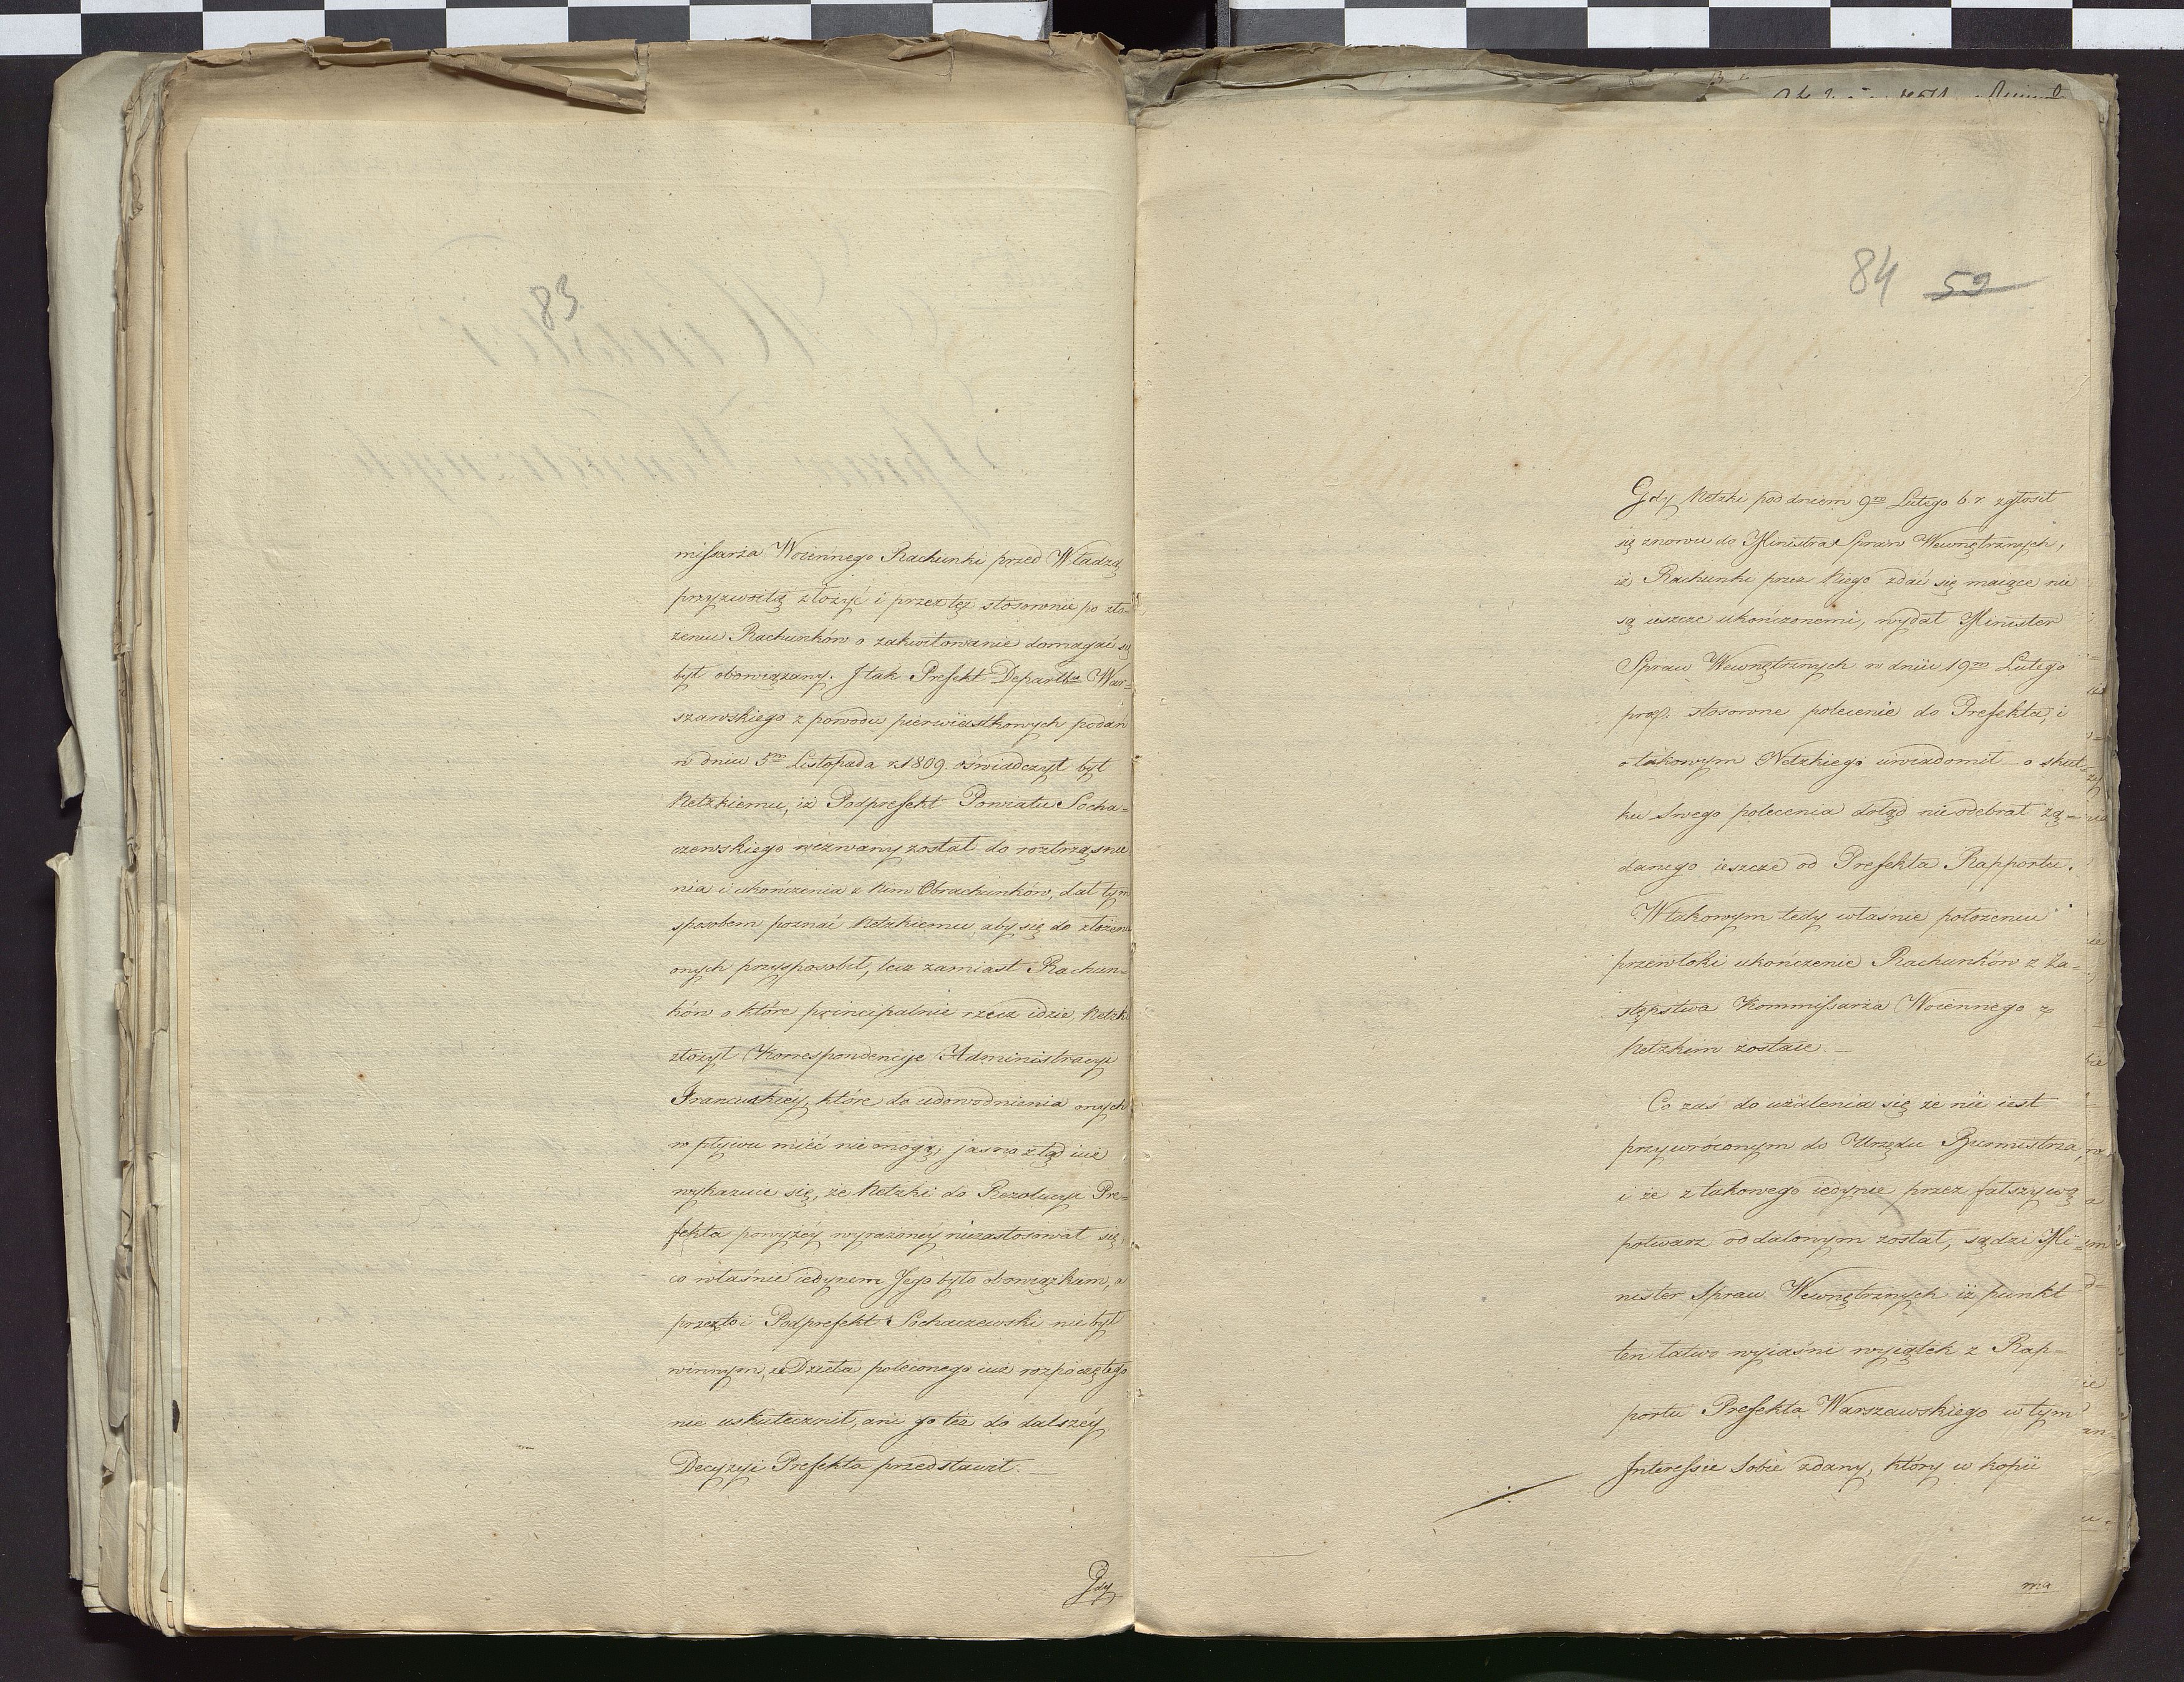 83
missarza Woiennego Rachunki przed Władzą
przyzwoitą złożyć i przez tęż stosownie po zło-
żeniu Rachunków o zakwitowanie domagać się
był obowiązany. J tak Prefekt Departtu War-
szawskiego z powodu pierwiastkowych podań
w dniu 5m Listopada r 1809. oświadczył był
Netzkiemu, iż Podprefekt Powiatu Socha-
czewskiego wezwany został do roztrząśnie
nia i ukończenia z Nim Obrachunków, dał tym
sposobem poznać Netzkiemu, aby się do złożenia
onych przysposobił, lecz zamiast Rachun-
ków o które principalnie rzecz idzie, Netzki
złożył Korrespondencije Administracyi
Francuzkiey, które do udowodnienia onych
wpływu mieć nie mogą; jasno ztąd iuż
wykazuie się, że Netzki do Rezolucyi Pre-
fekta powyżéy wyrażonéy niezastosował się,
co właśnie iedynem Jego było obowiązkiem, a
przeto i Podprefekt Sochaczewski nie był
winnym, że Dzieła poleconego iuż rozpoczętego
nie uskutecznił, ani go też do dalszéy
Decyzyi Prefekta przedstawił. —
Gdy
84 59
Gdy Netzki pod dniem 9go Lutego b. r. zgłosił
się znowu do Ministra Spraw Wewnętrznych,
iż Rachunki przez Niego zdać się maiące nie
są ieszcze ukończonemi, wydał Minister
Spraw Wewnętrznych w dniu 19m Lutego
stosowne polecenie do Prefekta, i
o takowym Netzkiego uwiadomił — o skut-
ku Swego polecenia dotąd nieodebrał żą-
danego ieszcze od Prefekta Rapportu.
W takowym tedy właśnie położeniu
przewłoki ukończenie Rachunków z Za-
stępstwa Kommissarza Woiennego z
Netzkim zostaie. —
Co zaś do użalenia się że nie iest
przywróconym do Urzędu Burmistrza,
i że z takowego iedynie przez fałszywą
potwarz oddalonym został, sądzi Mi-
nister Spraw Wewnętrznych iż punkt
ten łatwo wyiaśni wyiątek z Rap-
portu Prefekta Warszawskiego w tym
Interessie Sobie zdany, który w kopii
ma